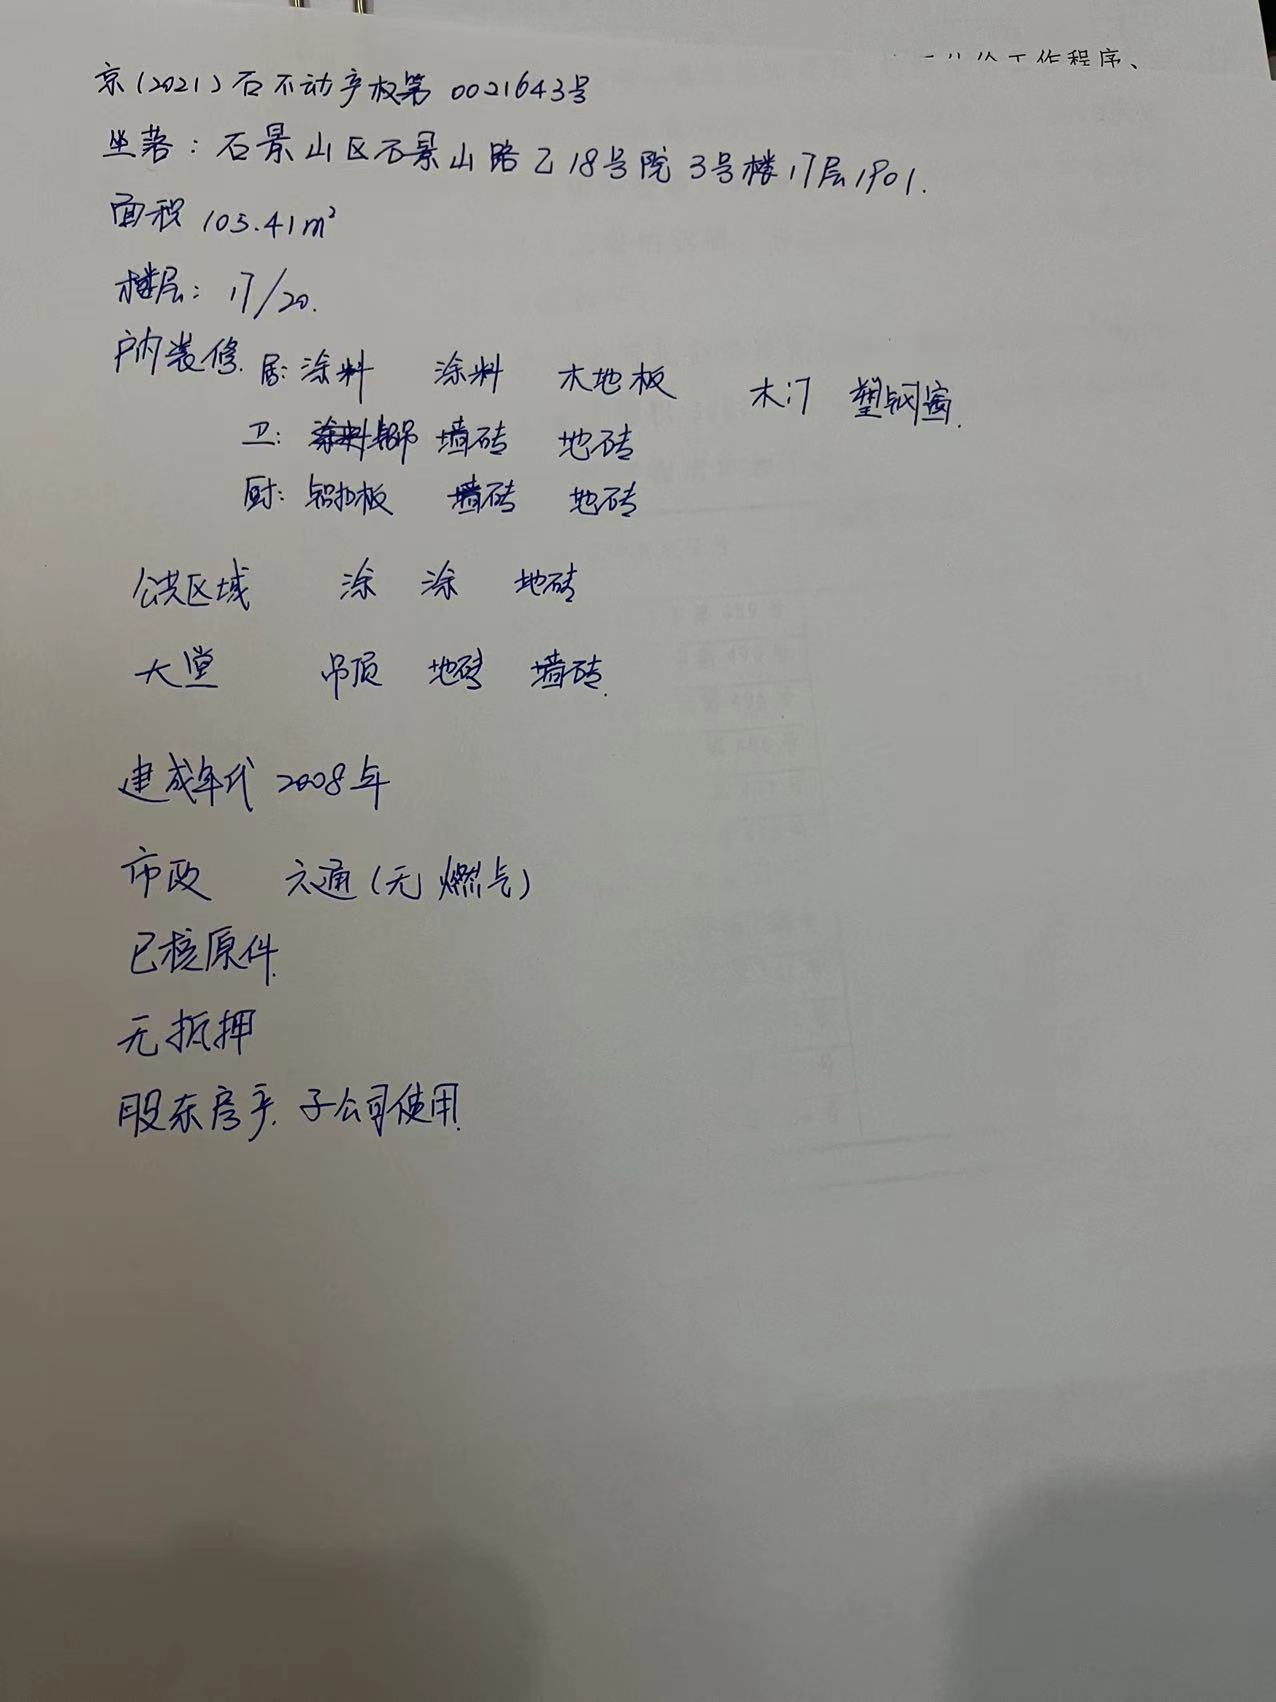 工作程序、
京(2021)石不动产权第0021643号
坐落：石景山区石景山路乙18号院3号楼17层1901.
面积 103.41m²
楼层：17/20.
户内装修. 居：涂料 涂料 木地板 木门 塑钢窗.
卫： 铝扣 墙砖 地砖
厨：铝扣板 墙砖 地砖
公共区域 涂 涂 地砖
大堂 吊顶 地砖 墙砖.
建成年代 2008年
市政 六通(无燃气)
已核原件.
无抵押
股东房产. 子公司使用.